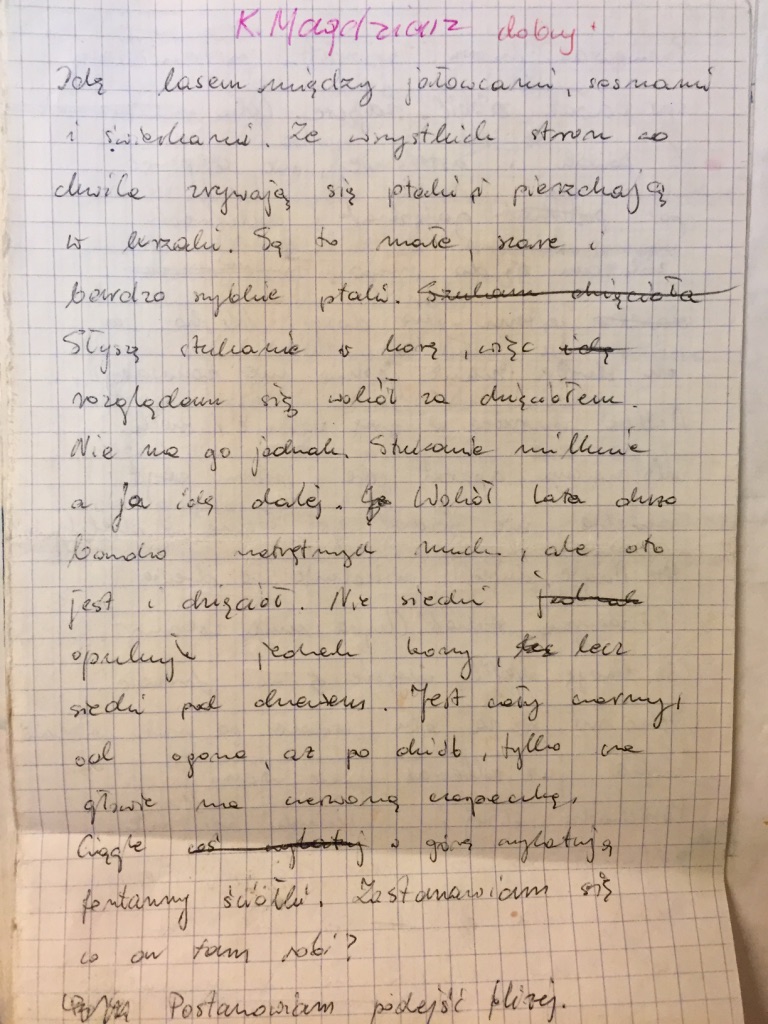 K. Magdziarz dobry +
Idę lasem między jałowcami, sosnami
i świerkami. Ze wszystkich stron co
chwila zrywają się ptaki i pierzchają
w krzaki. Są to małe, szare i
bardzo szybkie ptaki. Szukam dzięcioła
Słyszę stukanie w korę, więc idę
rozglądam się wokół za dzięciołem.
Nie ma go jednak. Stukanie milknie
a ja idę dalej. Wokół lata dużo
bardzo natrętnych much, ale oto
jest i dzięcioł. Nie siedzi jednak
opukuje jednak kory, lecz
siedzi pod drzewem. Jest cały czarny,
od ogona, aż po dziób, tylko na
głowie ma czerwoną czapeczkę,
Ciągle coś wylatuj w górę wylatują
fontanny ściółki. Zastanawiam się
co on tam robi?
Postanawiam podejść bliżej.